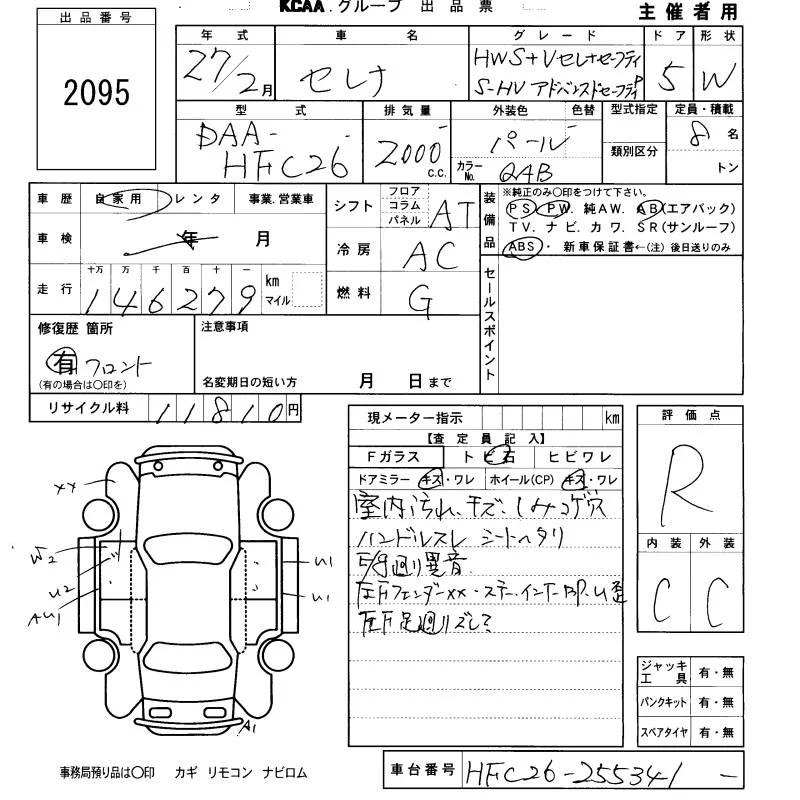 KCAA.グループ 出品票
主催者用
出品番号
2095
年式
27/2月
車名
セレナ
グレード
HWS+Vセレナセーフティ
S-HV アドバンスドセーフティP
ドア
5
形状
W
型式
DAA-
HFC26
排気量
2000
c.c.
外装色
色替
パール
カラーNo.
QAB
型式指定
類別区分
定員・積載
8名
トン
車歴 自家用 レンタ 事業.営業車
車検 年 月
走行 十万 万 千 百 十 一
146279
km
マイル
シフト フロア コラム パネル AT
冷房 AC
燃料 G
装備品
※純正のみ○印をつけて下さい。
PS. PW. 純AW. AB(エアバック)
TV. ナビ. カワ. SR(サンルーフ)
ABS・ 新車保証書←(注) 後日送りのみ
セールスポイント
修復歴 箇所
有 フロント
(有の場合は○印を)
注意事項
名変期日の短い方 月 日まで
リサイクル料 11810円
現メーター指示 km
【査定員記入】
Fガラス トビ石 ヒビワレ
ドアミラー キズ・ワレ ホイール(CP) キズ・ワレ
室内汚れ、キズ、シミ、コゲ穴
ハンドルスレ シートヘタリ
E/g廻り異音
左Fフェンダーxx・ステー・インナー
左F足廻りズレ
評価点
R
内装 外装
C C
ジャッキ工具 有・無
パンクキット 有・無
スペアタイヤ 有・無
XX
W2
U2
AU1
U1
U1
A1
事務局預り品は○印 カギ リモコン ナビロム
車台番号 HFC26-255341 -